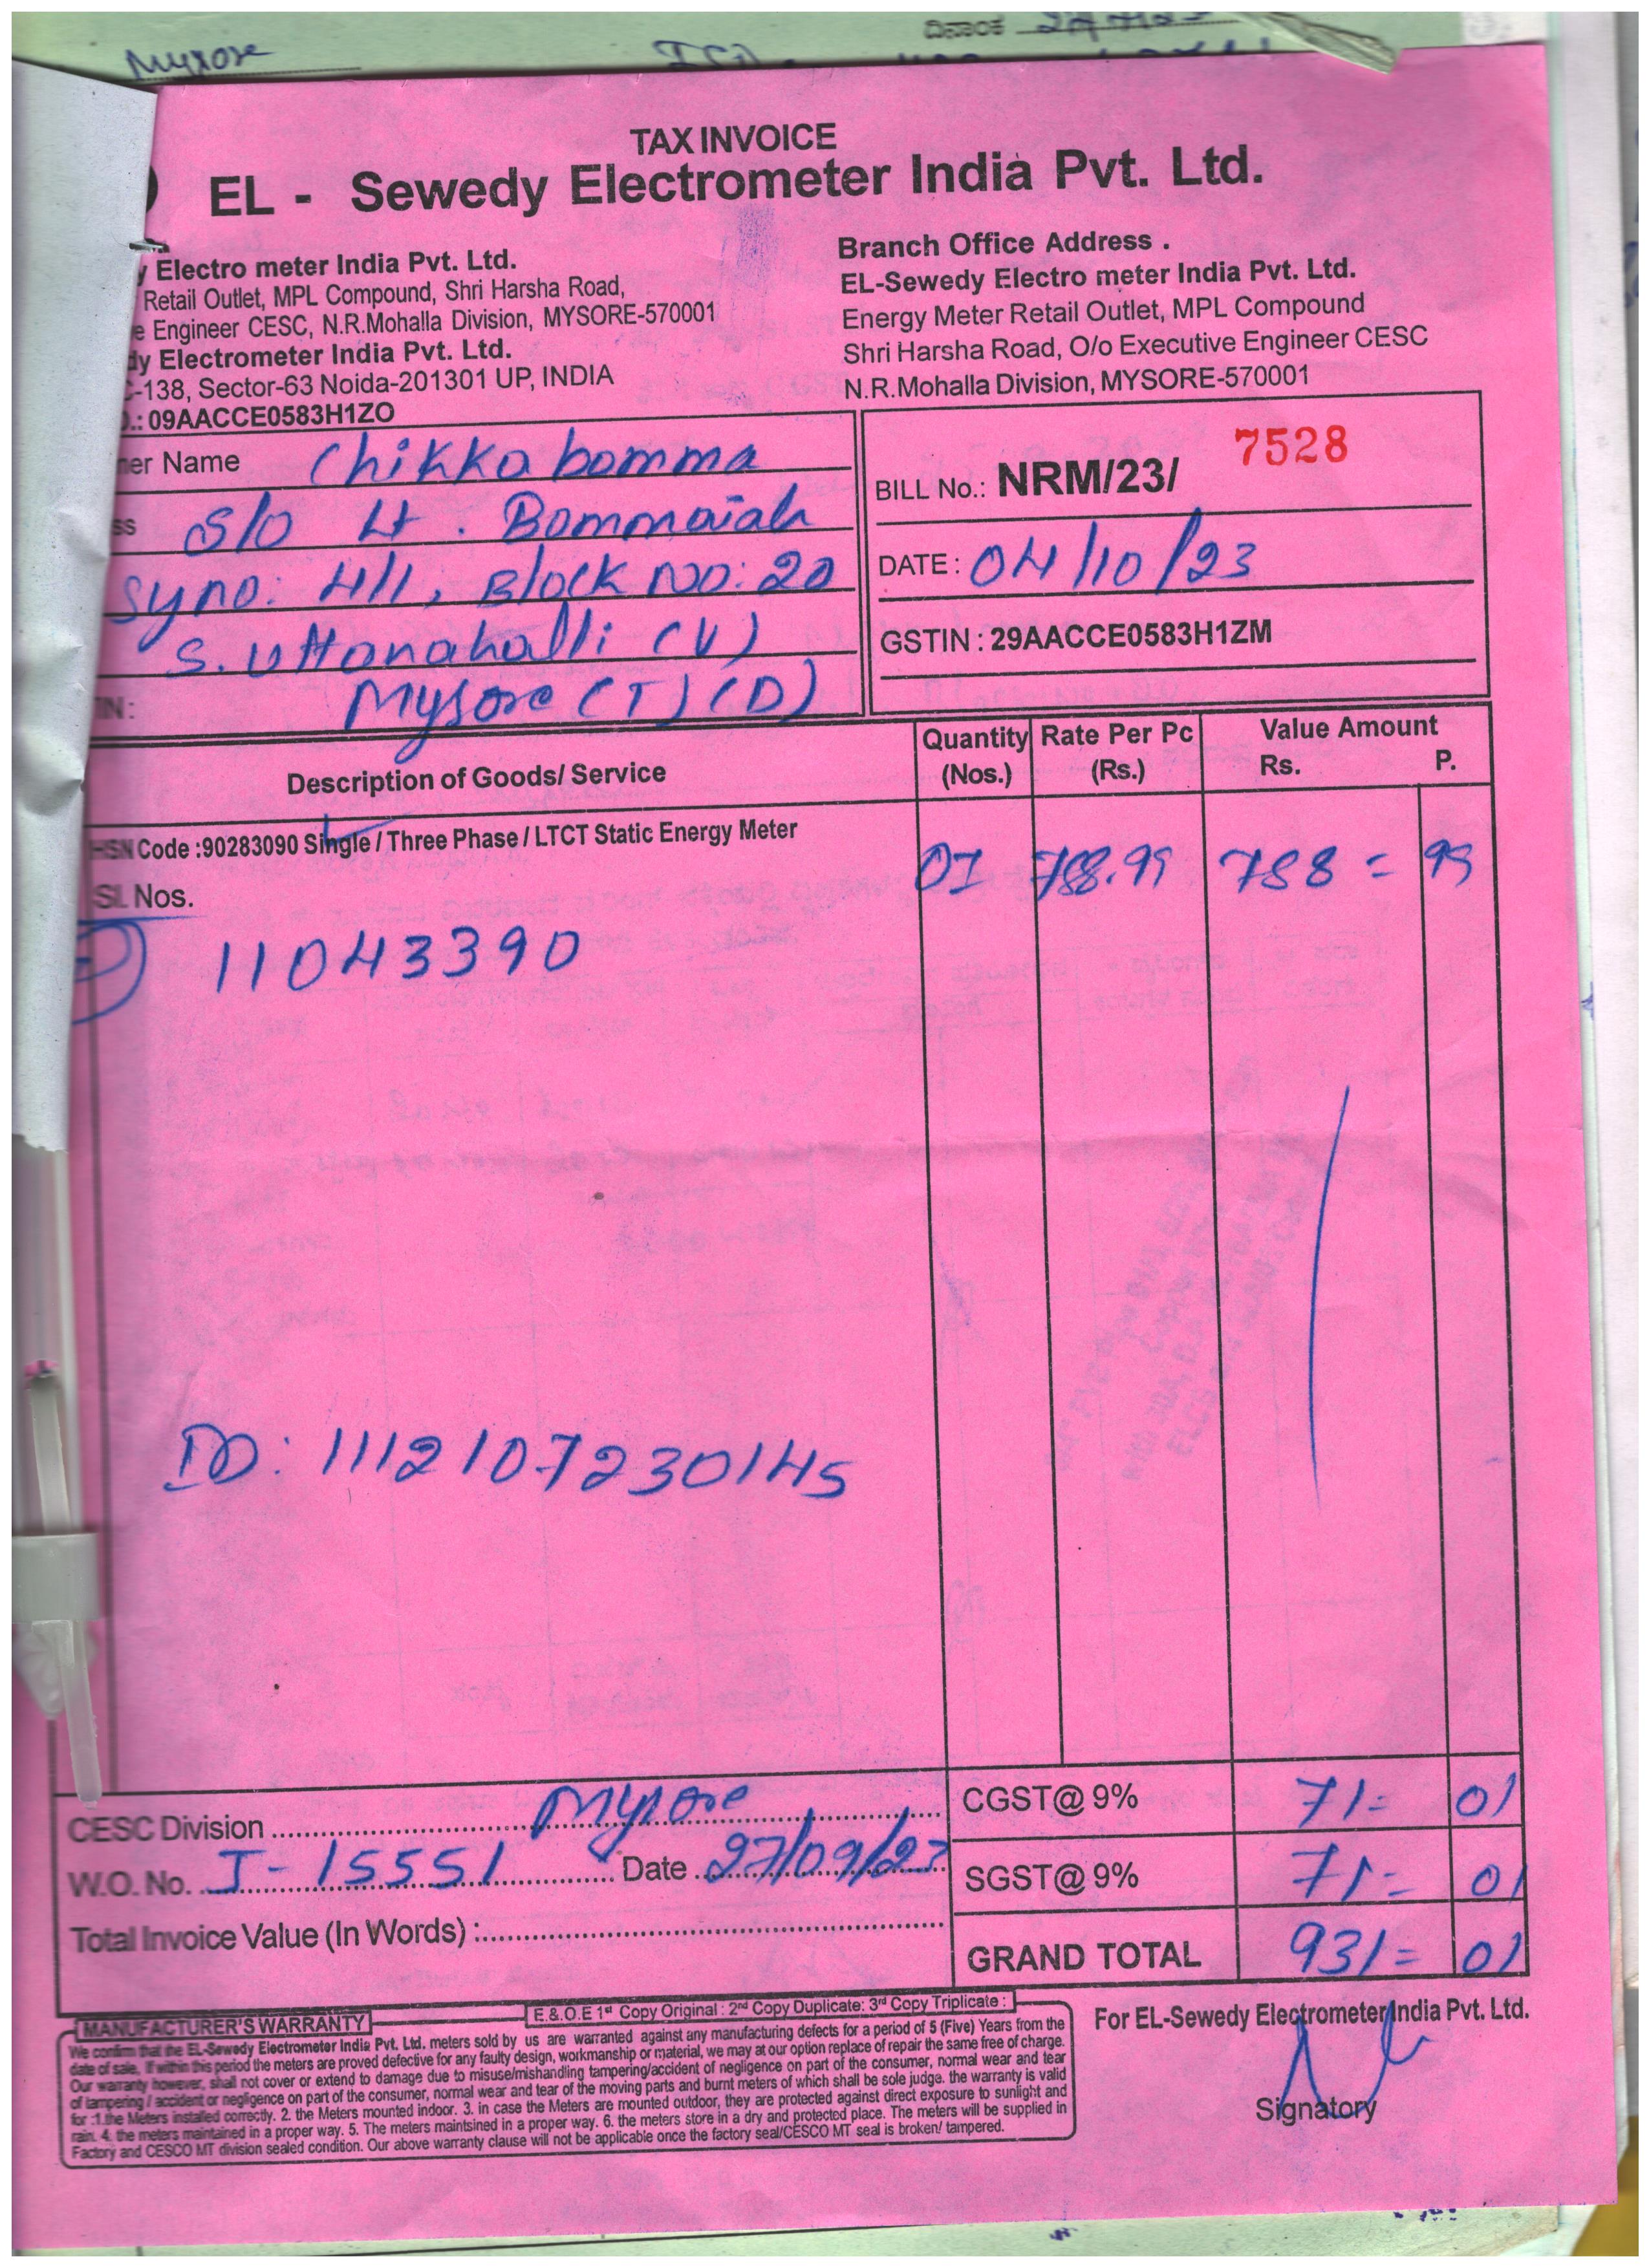 Mysore
ದಿನಾಂಕ
TAX INVOICE
EL - Sewedy Electrometer India Pvt. Ltd.
y Electro meter India Pvt. Ltd.
Retail Outlet, MPL Compound, Shri Harsha Road,
e Engineer CESC, N.R.Mohalla Division, MYSORE-570001
dy Electrometer India Pvt. Ltd.
C-138, Sector-63 Noida-201301 UP, INDIA
.: 09AACCE0583H1ZO
Branch Office Address .
EL-Sewedy Electro meter India Pvt. Ltd.
Energy Meter Retail Outlet, MPL Compound
Shri Harsha Road, O/o Executive Engineer CESC
N.R.Mohalla Division, MYSORE-570001
er Name Chikkabomma
ss S/O Lt. Bommaiah
Syno: 4/1, Block No: 20
S. Uttanahalli (V)
IN: Mysore (T) (D)
BILL No.: NRM/23/ 7528
DATE : 04/10/23
GSTIN : 29AACCE0583H1ZM
Description of Goods/ Service Quantity (Nos.) Rate Per Pc (Rs.) Value Amount Rs. P.
HSN Code :90283090 Single / Three Phase / LTCT Static Energy Meter 01 788.99 788 = 99
Sl. Nos.
11043390
ID: 1112107230145
CESC Division Mysore
W.O. No. I-15551 Date 27/09/23
Total Invoice Value (In Words) :
CGST@ 9% 71= 01
SGST@ 9% 71= 01
GRAND TOTAL 931= 01
E.& O.E 1st Copy Original : 2nd Copy Duplicate: 3rd Copy Triplicate :
MANUFACTURER'S WARRANTY
We confirm that the EL-Sewedy Electrometer India Pvt. Ltd. meters sold by us are warranted against any manufacturing defects for a period of 5 (Five) Years from the
date of sale. If within this period the meters are proved defective for any faulty design, workmanship or material, we may at our option replace of repair the same free of charge.
Our warranty however, shall not cover or extend to damage due to misuse/mishandling tampering/accident of negligence on part of the consumer, normal wear and tear
of tampering / accident or negligence on part of the consumer, normal wear and tear of the moving parts and burnt meters of which shall be sole judge. the warranty is valid
for :1.the Meters installed correctly. 2. the Meters mounted indoor. 3. in case the Meters are mounted outdoor, they are protected against direct exposure to sunlight and
rain. 4. the meters maintained in a proper way. 5. The meters maintsined in a proper way. 6. the meters store in a dry and protected place. The meters will be supplied in
Factory and CESCO MT division sealed condition. Our above warranty clause will not be applicable once the factory seal/CESCO MT seal is broken/ tampered.
For EL-Sewedy Electrometer India Pvt. Ltd.
Signatory